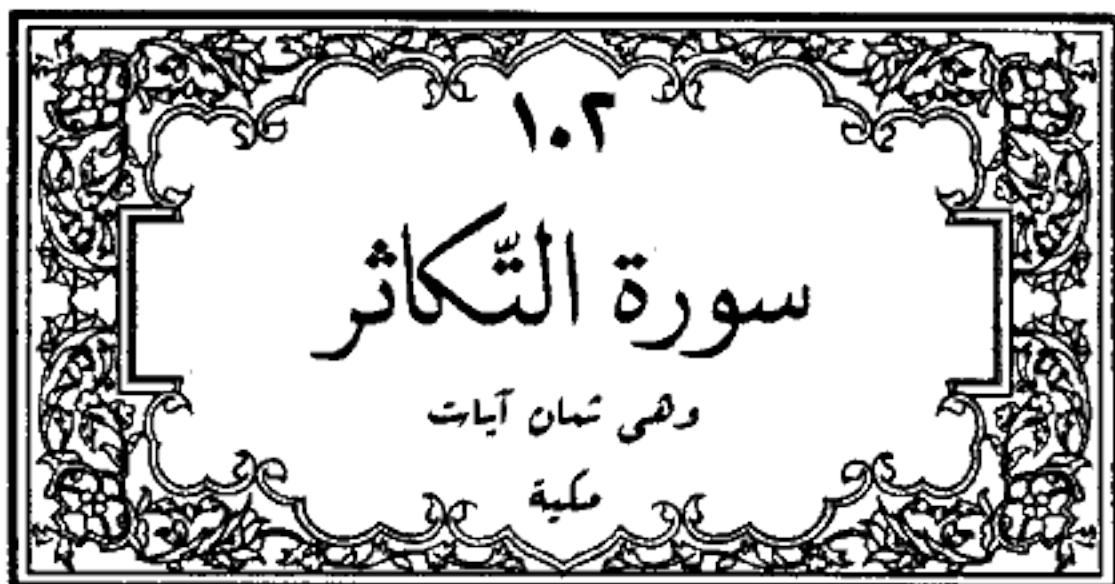 ١٠٢
سورة التّكاثر
وهي ثمان آيات
مكية